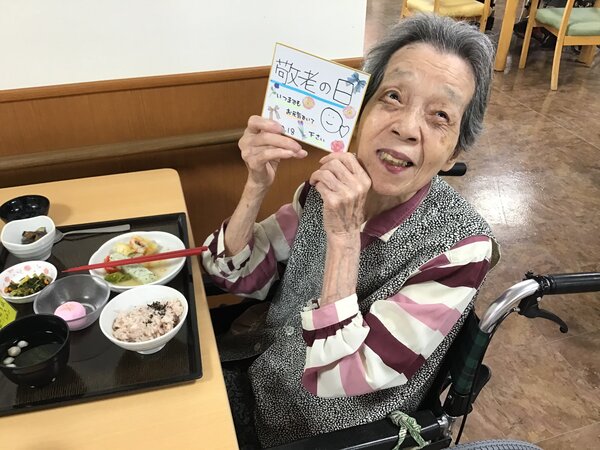 敬老の日
いつまでも
お元気でいて
下さい